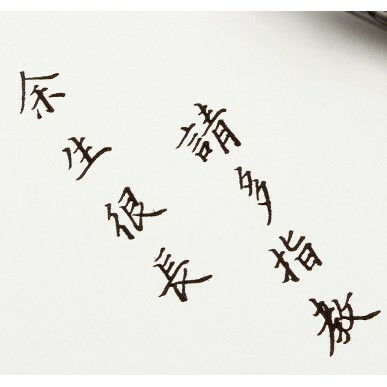 余生很長
請多指教